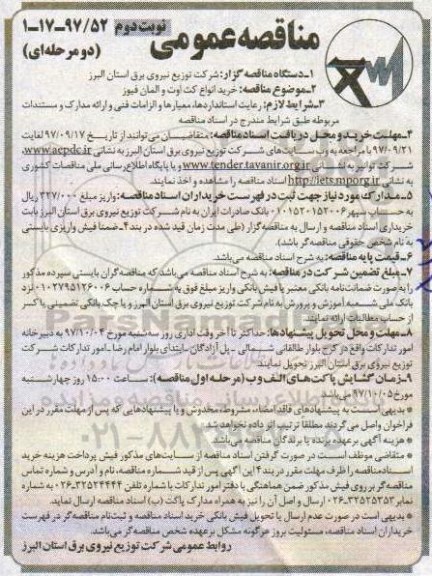 مناقصه عمومی نوبت دوم ۹۷/۵۲-۱۷-۱
(دو مرحله‌ای)
۱-دستگاه مناقصه گزار: شرکت توزیع نیروی برق استان البرز
۲-موضوع مناقصه: خرید انواع کت اوت و المان فیوز
۳-شرایط لازم: رعایت استانداردها، معیارها و الزامات فنی و ارائه مدارک و مستندات
مربوطه طبق شرایط مندرج در اسناد مناقصه
۴-مهلت خرید و محل دریافت اسناد مناقصه: متقاضیان می توانند از تاریخ ۹۷/۰۹/۱۷ لغایت
۹۷/۰۹/۲۱ با مراجعه به وب سایت‌های شرکت توزیع نیروی برق استان البرز به نشانی www.aepdc.ir،
شرکت توانیر به نشانی www.tender.tavanir.org.ir و یا پایگاه اطلاع رسانی ملی مناقصات کشوری
به نشانی http://iets.mporg.ir اسناد مناقصه را مشاهده و اخذ نمایند.
۵-مدارک مورد نیاز جهت ثبت در فهرست خریداران اسناد مناقصه: واریز مبلغ ۳۲۷/۰۰۰ ریال
به حساب سپهر ۰۱۰۱۵۲۰۱۵۲۰۰۶ بانک صادرات ایران به نام شرکت توزیع نیروی برق استان البرز بابت
خریداری اسناد مناقصه و ارسال به مناقصه گزار (طی مدت زمان قید شده در بند ۴-ضمنا فیش واریزی بایستی
به نام شخص حقوقی مناقصه گر باشد).
۶-قیمت پایه مناقصه: به شرح اسناد مناقصه می‌باشد.
۷-مبلغ تضمین شرکت در مناقصه: به شرح اسناد مناقصه می‌باشد که مناقصه گران بایستی سپرده مذکور
را به صورت ضمانت‌نامه بانکی معتبر یا فیش بانکی واریز مبلغ فوق به شماره حساب ۰۱۰۲۷۹۵۱۲۶۰۰۶ نزد
بانک ملی شعبه آموزش و پرورش به نام شرکت توزیع نیروی برق استان البرز و یا چک بانکی تضمینی یا کسر
از حساب مطالبات ارائه نمایند.
۸-مهلت و محل تحویل پیشنهادها: حداکثر تا آخر وقت اداری روز سه‌شنبه مورخ ۹۷/۱۰/۰۴ به دبیرخانه
امور تدارکات واقع در کرج بلوار طالقانی شمالی - پل آزادگان-ابتدای بلوار امام رضا-امور تدارکات شرکت
توزیع نیروی برق استان البرز تحویل نمایند.
۹-زمان گشایش پاکت‌های الف و ب (مرحله اول مناقصه): ساعت ۱۵:۰۰ روز چهارشنبه
مورخ ۹۷/۱۰/۰۵ می‌باشد.
* بدیهی است به پیشنهادهای فاقد امضاء، مشروط، مخدوش و یا پیشنهادهایی که پس از مهلت مقرر در این
فراخوان واصل می‌گردند مطلقا ترتیب اثر داده نخواهد شد.
* هزینه آگهی برعهده برنده یا برندگان مناقصه می‌باشد.
* متقاضی موظف است در صورت گرفتن اسناد مناقصه از سایت‌های مذکور فیش پرداخت هزینه خرید
اسناد مناقصه را ظرف مهلت مقرر در بند ۴ این آگهی پس از قید شماره مناقصه، نام و آدرس و شماره تماس
مناقصه گر بر روی فیش مذکور ضمن هماهنگی با دفتر امور تدارکات با شماره تلفن ۳۲۵۲۴۴۴۴-۰۲۶ به شماره
نمابر ۳۲۵۲۵۲۵۳-۰۲۶ ارسال و اصل آن را نیز به همراه مدارک پاکت (ب) اسناد مناقصه ارسال نماید.
* بدیهی است در صورت عدم ارسال یا تحویل فیش بانکی خرید اسناد مناقصه و ثبت نام مناقصه گر در فهرست
خریداران اسناد مناقصه، مسئولیت بروز هرگونه مشکل برعهده شخص مناقصه گر می‌باشد.
روابط عمومی شرکت توزیع نیروی برق استان البرز